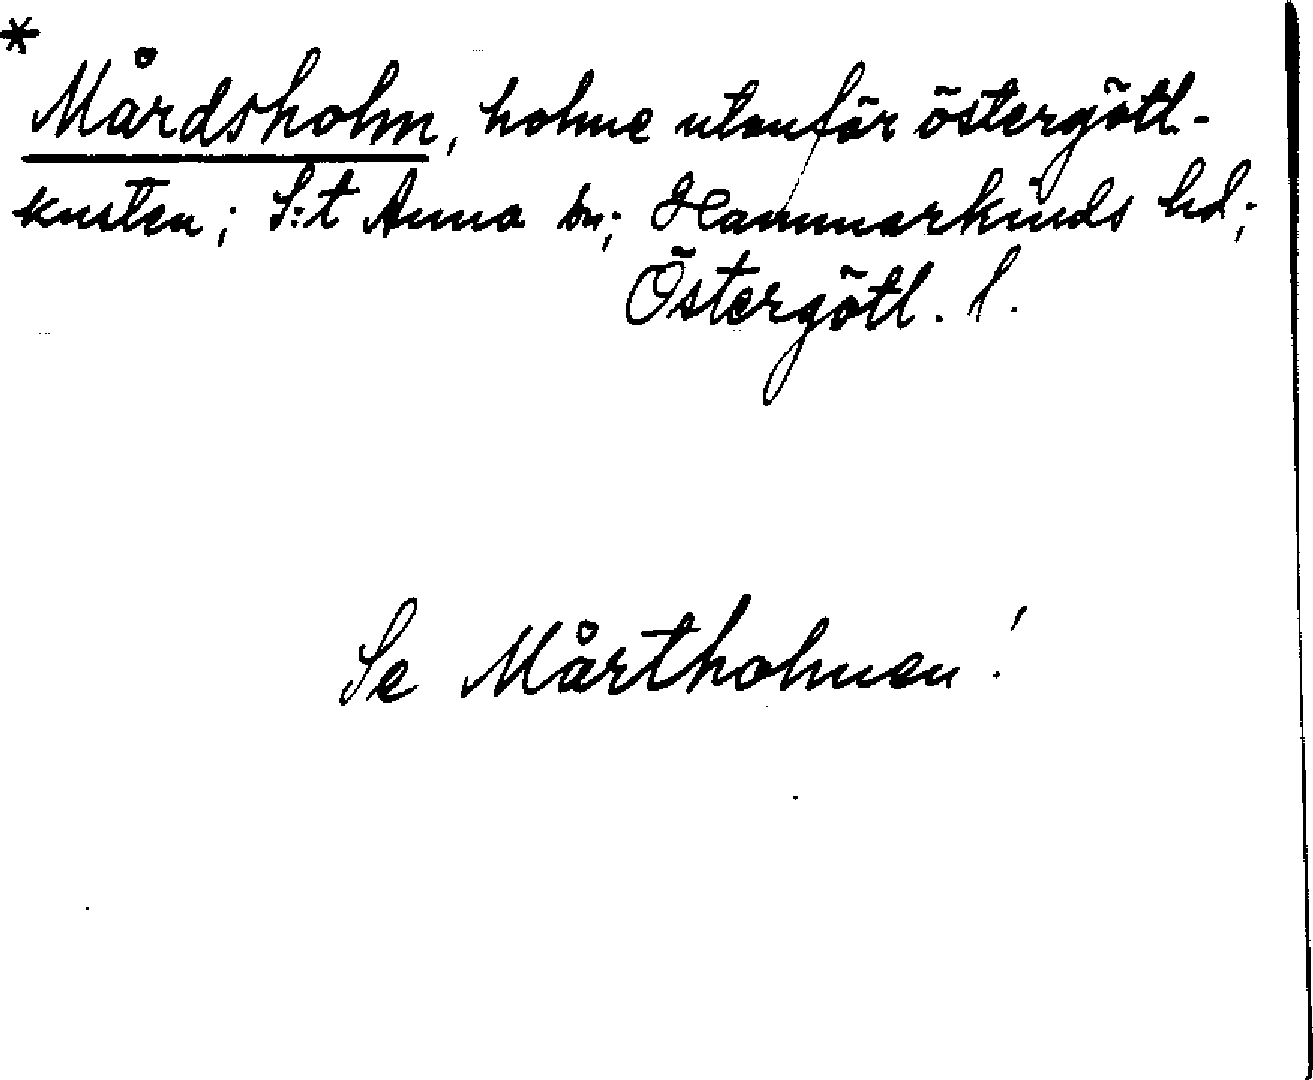 *
Mårdsholm, holme utanför östergötl.-
kusten; S:t Anna sn; Hammarkinds hd;
Östergötl. l.
Se Mårtholmen!